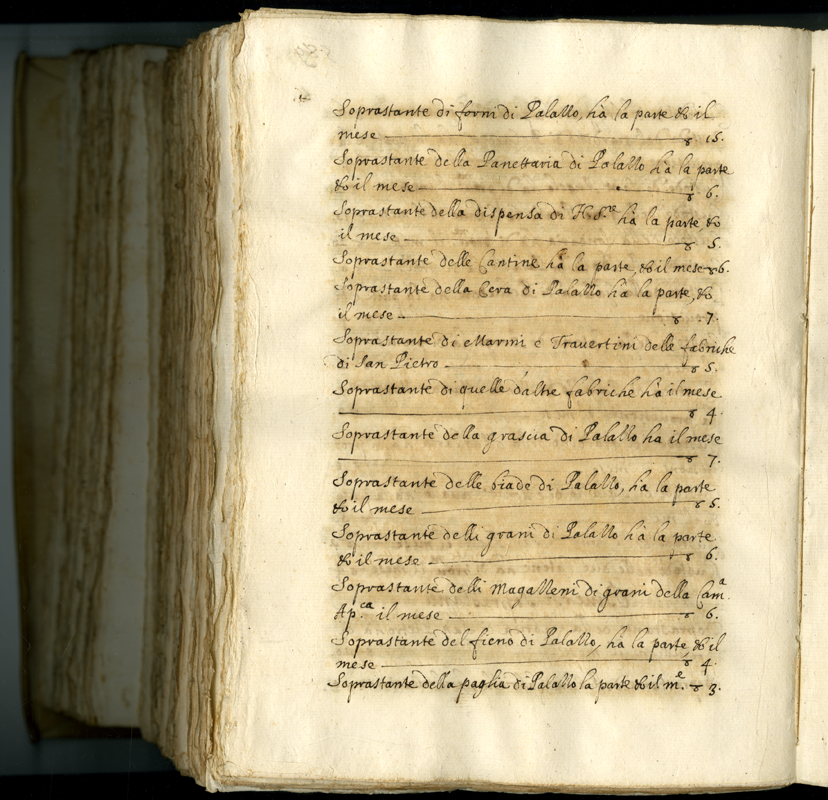 Soprastante di forni di Palazzo, hà la parte & il
mese ▽ 15.
Soprastante della Panettaria di Palazzo hà la parte
& il mese ▽ 6.
Soprastante della dispensa di N. S.re hà la parte, &
il mese ▽ 5.
Soprastante delle Cantine hà la parte, & il mese ▽ 6.
Soprastante della Cera di Palazzo hà la parte, &
il mese ▽ 7.
Soprastante di Marmi e Travertini delle fabriche
di San Pietro ▽ 5.
Soprastante di quelle d'altre fabriche hà il mese
▽ 4.
Soprastante della grascia di Palazzo hà il mese
▽ 7.
Soprastante delle biade di Palazzo, hà la parte
& il mese ▽ 5.
Soprastante delli grani di Palazzo hà la parte
& il mese ▽ 6.
Soprastante delli Magazzeni di grani della Cam.a
Ap.ca il mese ▽ 6.
Soprastante del fieno di Palazzo, hà la parte, & il
mese ▽ 4.
Soprastante della paglia di Palazzo la parte & il m.e ▽ 3.